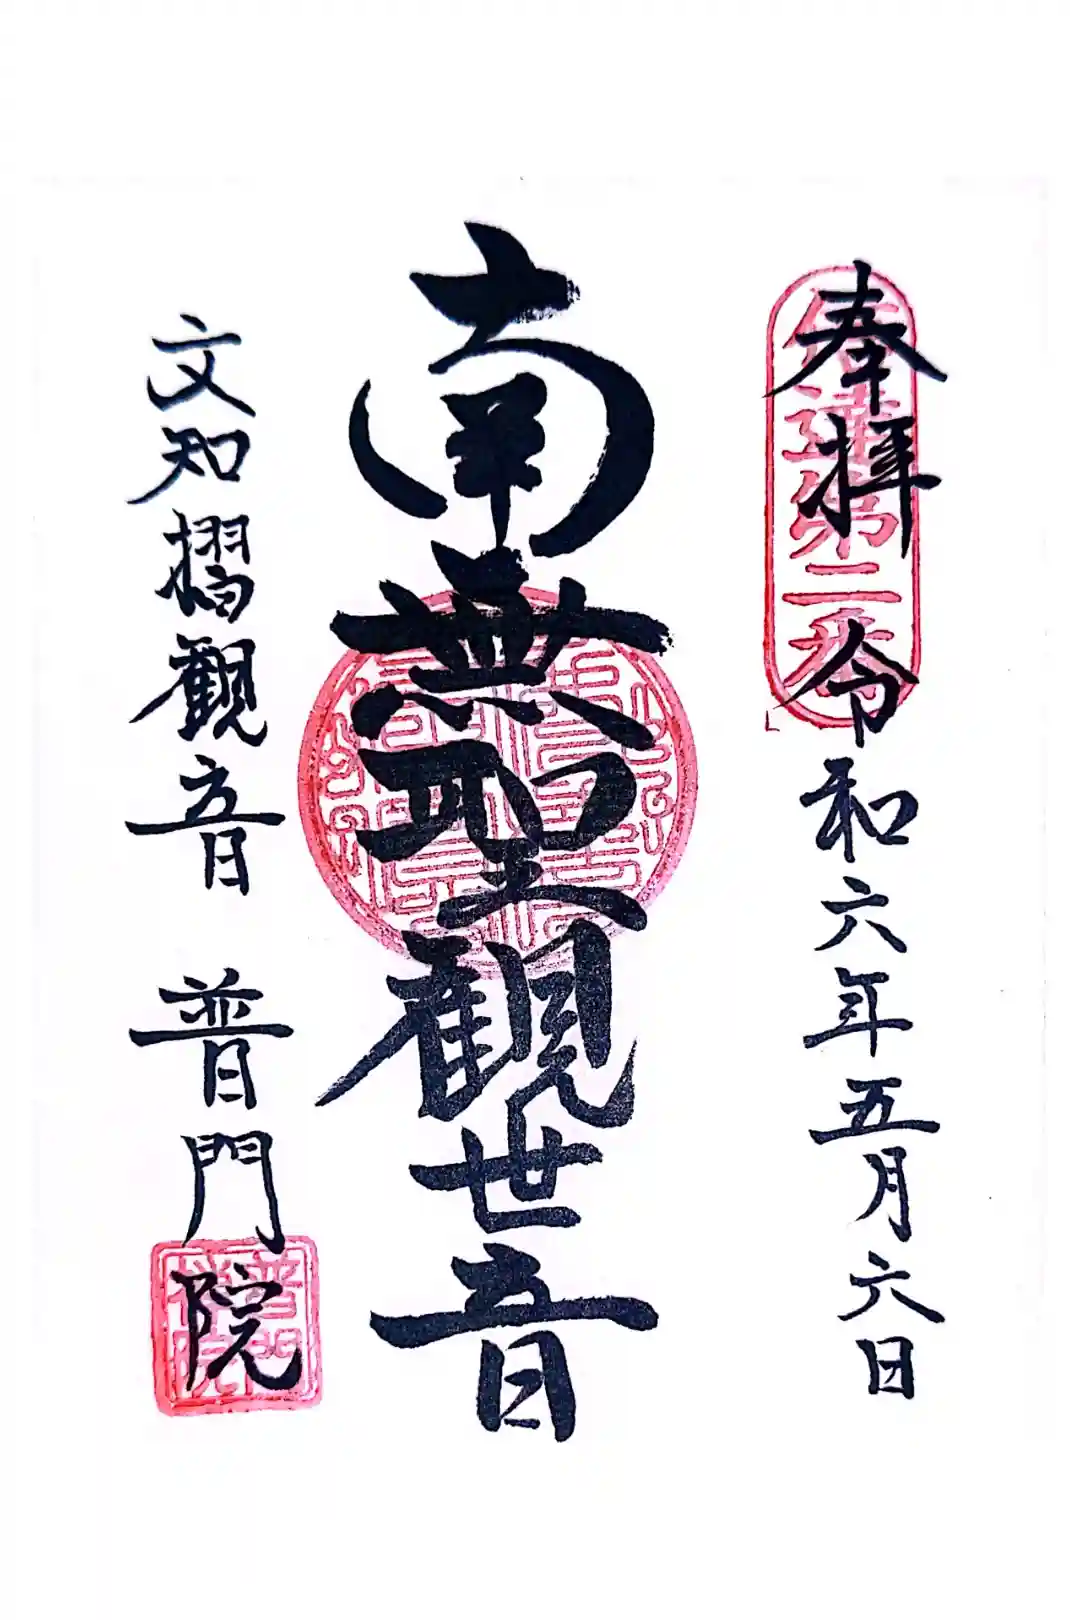 奉拝 令和六年五月六日
南無聖観世音
文知摺観音 普門院
信達第二番
普門院